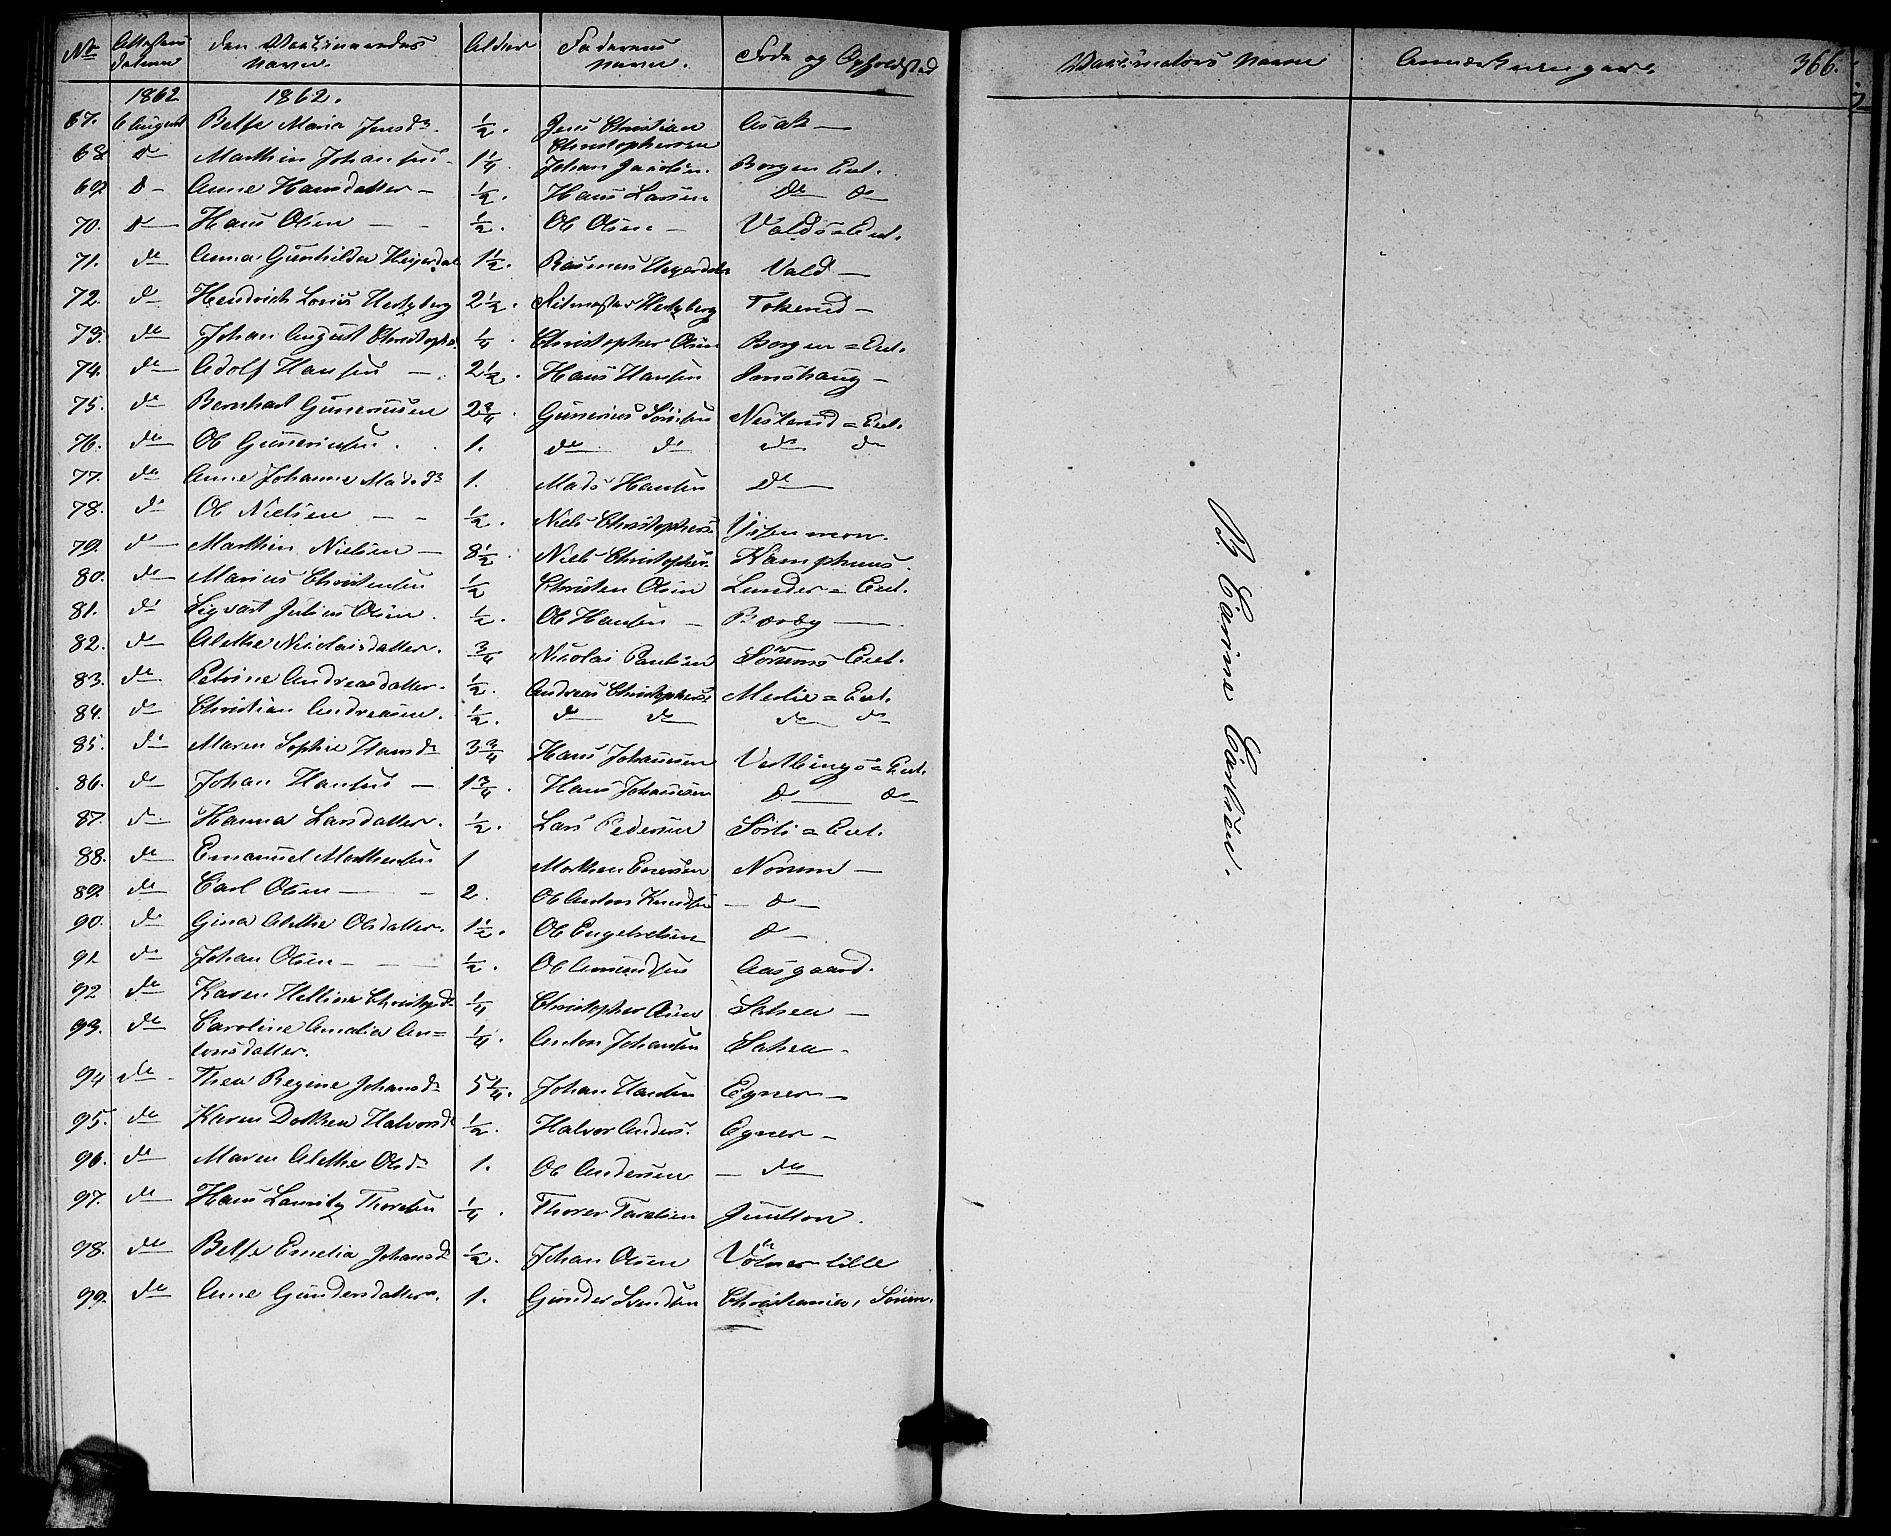 No Attestens Datum den Vaccineredes Navn. Alder Faderens Navn. Føde og Opholdsted
1862 1862.
67. 6 August Belse Maria Jensdr. 1/2. Jens Christian Christophersen Asak —
68 do Marthin Johansen 1 1/4. Johan Jacobsen. Borgen Eiet.
69 do Anne Hansdatter — 1/2. Hans Larsen do do
70. do Hans Olsen — 1/2. Ole Olsen — Valds = Eiet.
71. do Anna Gunhilda Heyerdal 1 1/2. Rasmus Heyerdal Vald —
72. do Hendrich Louis Hertzberg 2 1/2. Ritmester Hertzberg Tokerud —
73. do Johan August Christophs. 1/4. Christopher Olsen Borgen = Eiet.
74. do Adolf Hansen — 2 1/2. Hans Hansen Jonshaug —
75. do Bernhart Gunerusen 2 3/4. Gunerius Sörensen Nesterud = Eiet.
76. do Ole Guneriusen. 1. do do do do
77. do Anne Johanne Madsdr 1. Mads Hansen do
78. do Ole Nielsen — 1/2. Niels Christophers.
79. do Marthin Nielsen — 8 1/2. Niels Christophs. Kamphuus.
80. do Marius Christensen 1/2 Christen Olsen Lunder = Eiet.
81. do Sigvart Julius Olsen. 1/2. Ole Hansen — Berby —
82. do Alethe Nicolaisdatter. 3/4 Nicolai Paulsen Sörums Eiet.
83. do Petrine Andreasdatter. 1/2. Andreas Christophers. Melie = Eiet.
84. do Christian Andreasen. 1/2. do do do do
85. do Maren Sophie Hansdr 3 3/4 Hans Johannsen Vestbings = Eiet.
86. do Johan Hansen — 1 3/4. Hans Johansen do do
87. do Hanna Larsdatter. 1/2. Lars Pedersen Sörli = Eiet.
88. do Emanuel Mathesen 1 Mathen Enersen Nörum —
89. do Carl Olsen — 2. Ole Anton Knudsen — do —
90. do Gina Alethe Olsdatter. 1 1/2. Ole Engebretsen do —
91 do Johan Olsen — 1/2. Ole Amundsen Aasgaard.
92 do Karen Helline Christopdr 1/4 Christopher Olsen —
93. do Caroline Amalia Antonsdatter. 1/4. Anton Johansen
94 do Thea Regine Johansdr 5 1/4. Johan Hansen Egner —
95. do Karen Dorthea Halvorsdr 1/2. Halvor Anders. Egner —
96. do Maren Alethe Olsdr 1. Ole Andersen — do
97. do Hans Lauritz Thoresen 1/4. Thorer Taralsen Juulton.
98. do Belse Emelia Johansdr 1/2. Johan Olsen Völner lille
99. do Anne Gundersdatter. 1. Gunder Svendsen Christiania, Sörum.
Vaccinators Navn Anmærkninger. 366.